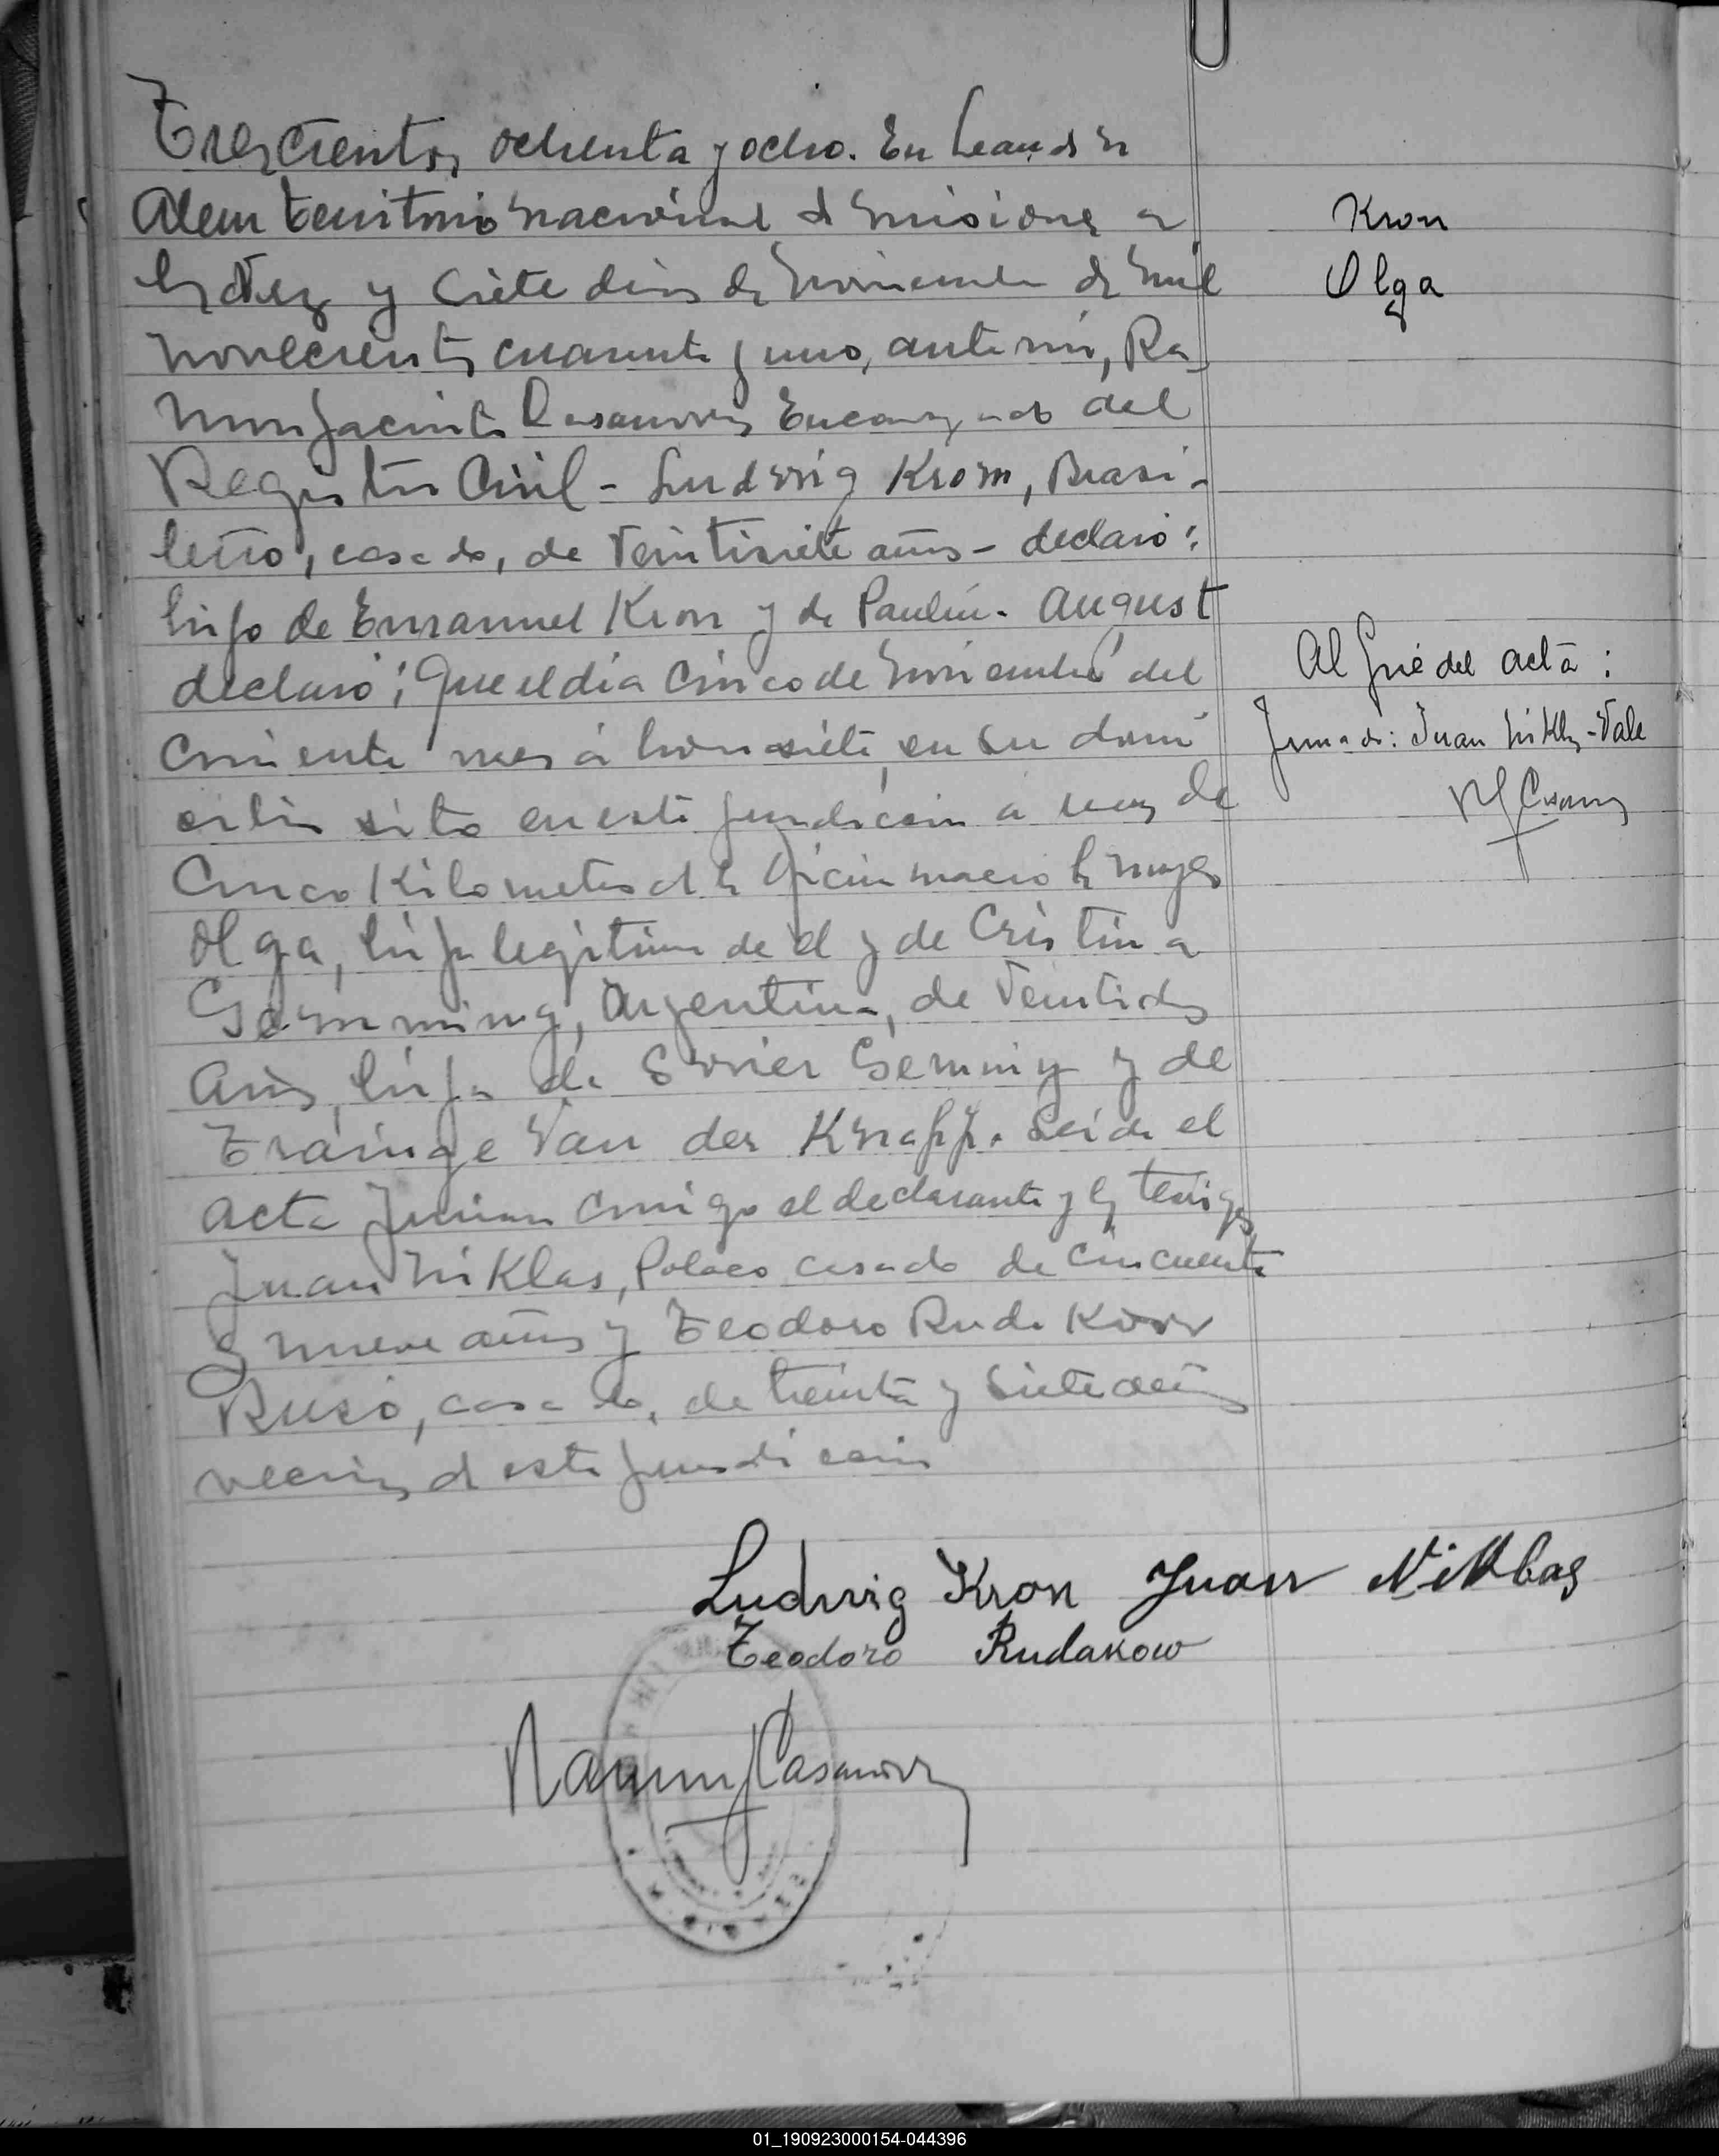 Trescientos ochenta y ocho. En Leandro N
Alem territorio nacional de Misiones a
los diez y siete dias de noviembre de mil
novecientos cuarenta y uno, ante mi, Ra-
mon Jacinto Casanova Encargado del
Registro Civil - Ludwig Krom, Brasi-
leño, casado, de veintisiete años - declaró:
hijo de Emanuel Kron y de Paulina August
declaró: Que el dia cinco de noviembre del
corriente mes á hora siete, en su domi
cilio sito en esta jurisdiccion á unos de
Cinco Kilometros de la oficina nacio la mujer
Olga, hija legitima de el y de Cristina
Gemming, Argentina, de veintidos
años, hija de Gemming y de
Van der Knapp. Leida el
acta firman conmigo el declarante y los testigos
Juan Niklas, Polaco casado de cincuenta
y nueve años y Teodoro Rudakow
Ruso, casado, de treinta y siete años
vecinos de esta jurisdiccion
Kron
Olga
Al pié del acta:
Firmado: Juan Niklas - Vale
Ludwig Kron Juan Niklas
Teodoro Rudakow
Ramon J Casanova
01_190923000154-044396